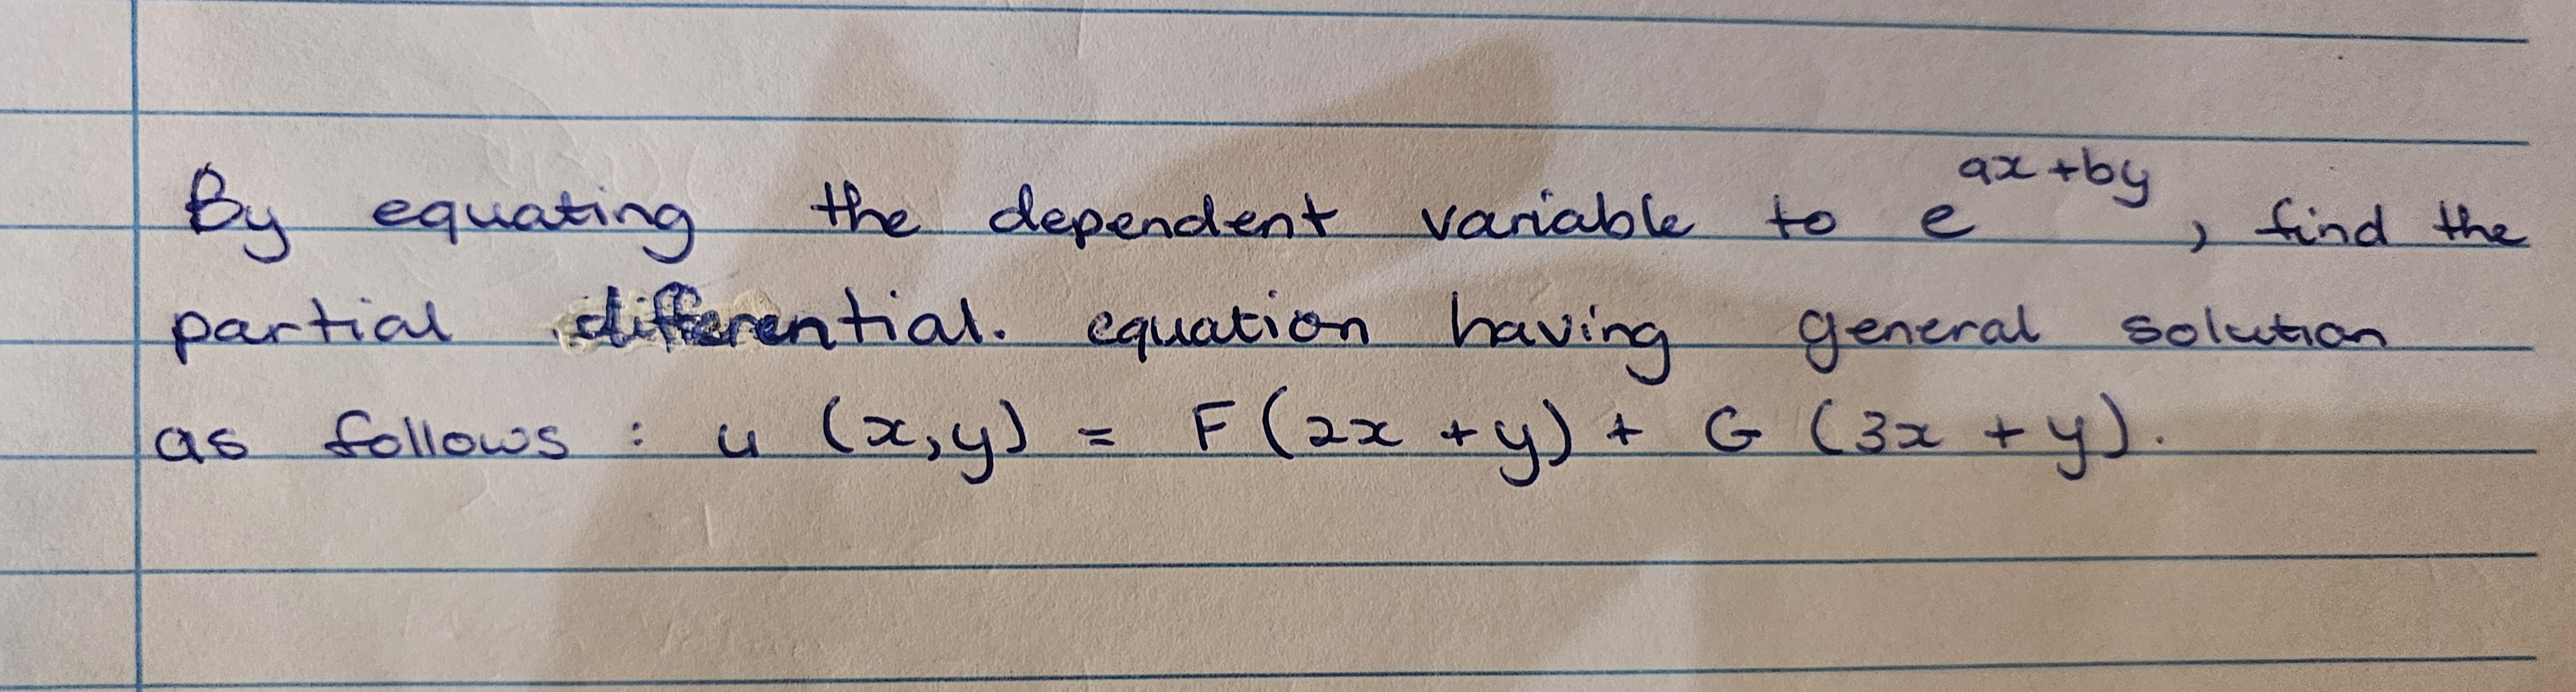 By equating the dependent variable to e^{ax+by}, find the
partial differential. equation having general solution
as follows : u (x,y) = F(2x + y) + G (3x + y).